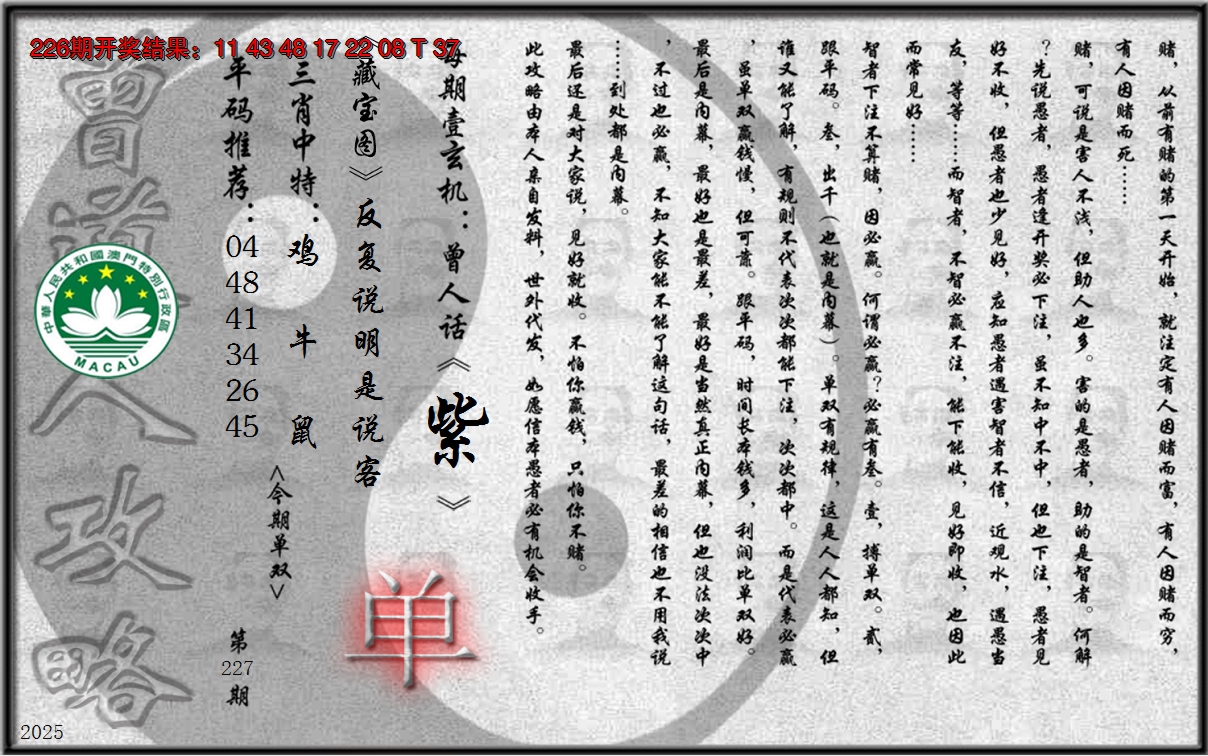 226期开奖结果：11 43 48 17 22 08 T 37
赌，从前有赌的第一天开始，就注定有人因赌而富，有人因赌而穷，
有人因赌而死……
赌，可说是害人不浅，但助人也多。害的是愚者，助的是智者。何解
？先说愚者，愚者逢开奖必下注，虽不知中不中，但也下注，愚者见
好不收，但愚者也少见好，应知愚者遇害智者不信，近观水，遇愚当
友，等等……而智者，不智必赢不注，能下能收，见好即收，也因此
而常见好……
智者下注不算赌，因必赢。何谓必赢？必赢有叁。壹，搏单双。贰，
跟平码。叁，出千（也就是内幕）。单双有规律，这是人人都知，但
谁又能了解，有规则不代表次次都能下注，次次都中。而是代表必赢
，虽单双赢钱慢，但可靠。跟平码，时间长本钱多，利润比单双好。
最后是内幕，最好也是最差，最好是当然真正内幕，但也没法次次中
，不过也必赢，不知大家能不能了解这句话，最差的相信也不用我说
……到处都是内幕。
最后还是对大家说，见好就收。不怕你赢钱，只怕你不赌。
此攻略由本人亲自发料，世外代发，如愿信本愚者必有机会收手。
每期壹玄机：曾人话《紫》
《藏宝图》反复说明是说客
单
三肖中特：鸡 牛 鼠
<今期单双>
平码推荐：04 48 41 34 26 45
第227期
曾道人攻略
中華人民共和國澳門特別行政區
MACAU
2025